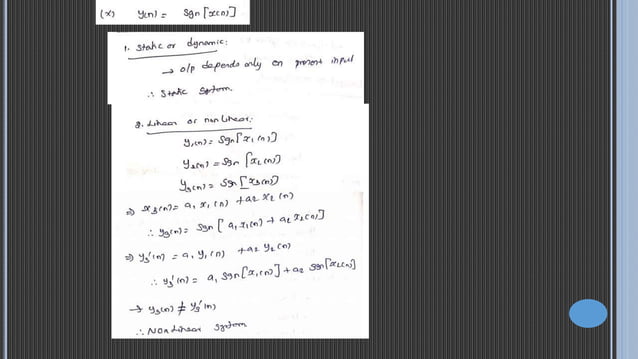 (x) y(n) = Sgn[x(n)]
1. Static or dynamic:
→ o/p depends only on present input
∴ Static System.
2. Linear or non linear:
y₁(n) = Sgn[x₁(n)]
y₂(n) = Sgn[x₂(n)]
y₃(n) = Sgn[x₃(n)]
⇒ x₃(n) = a₁ x₁(n) + a₂ x₂(n)
∴ y₃(n) = Sgn[a₁ x₁(n) + a₂ x₂(n)]
⇒ y₃'(n) = a₁ y₁(n) + a₂ y₂(n)
∴ y₃'(n) = a₁ Sgn[x₁(n)] + a₂ Sgn[x₂(n)]
→ y₃(n) ≠ y₃'(n)
∴ Non Linear System